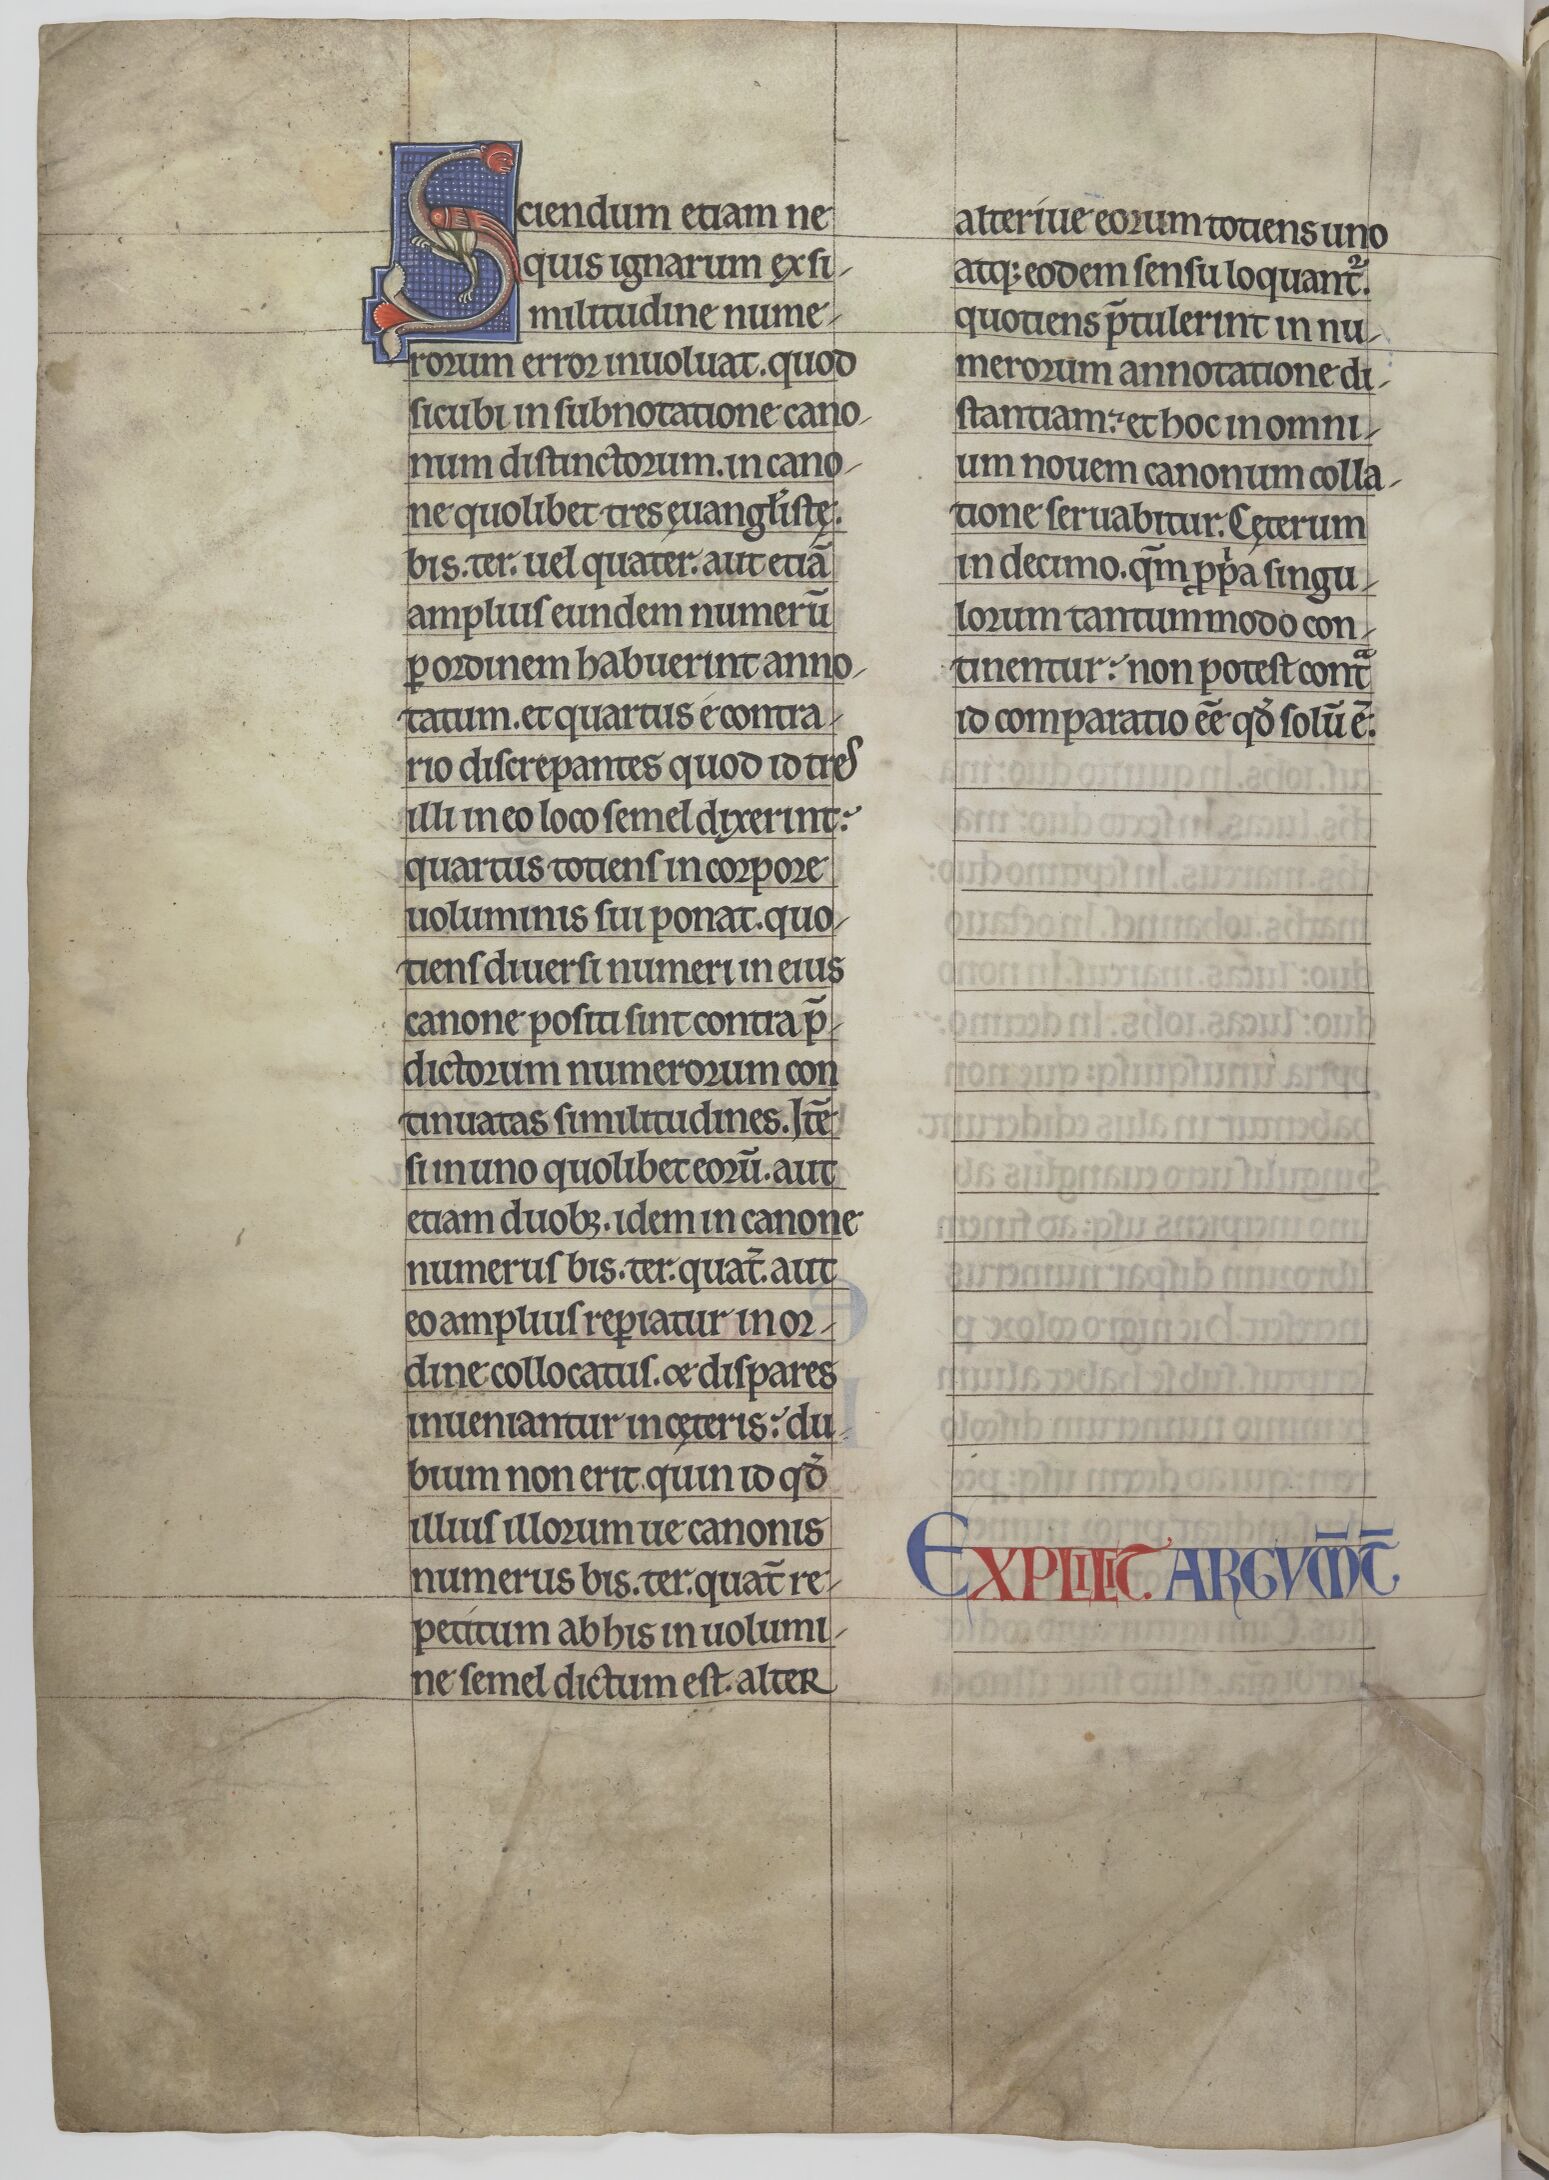 Sciendum etiam ne
quis ignarum ex si-
militudine nume-
rorum error inuoluat. quod
sicubi in subnotatione cano-
num distinctorum. in cano-
ne quolibet tres ęuangl̄istę.
bis. ter. uel quater. aut etiā
amplius eundem numerū
ꝑ ordinem habuerint anno-
tatum. et quartus é contra-
rio discrepantes quod id tres
illi in eo loco semel dixerint:
quartus totiens in corpore
uoluminis sui ponat. quo-
tiens diuersi numeri in eius
canone positi sint contra p̄-
dictorum numerorum con
tinuatas similitudines. Itē
si in uno quolibet eorū. aut
etiam duobꝫ. idem in canone
numerus bis. ter. quat̄. aut
eo amplius reꝑiatur in or-
dine collocatus. & dispares
inueniantur in cęteris: du-
bium non erit. quin id qď
illius illorum ue canonis
numerus bis. ter. quat̄ re-
petitum ab his in uolumi-
ne semel dictum est. alter
alteriue eorum totiens uno
atq; eodem sensu loquant᷑.
quotiens p̄tulerint in nu-
merorum annotatione di-
stantiam: et hoc in omni-
um nouem canonum colla-
tione seruabitur. Cęterum
in decimo. qm̄ ꝓpͥa singu-
lorum tantummodo con-
tinentur: non potest contᷓ
id comparatio eē̄ qď solū ē.
EXPLICIT ARGVM̄T̄